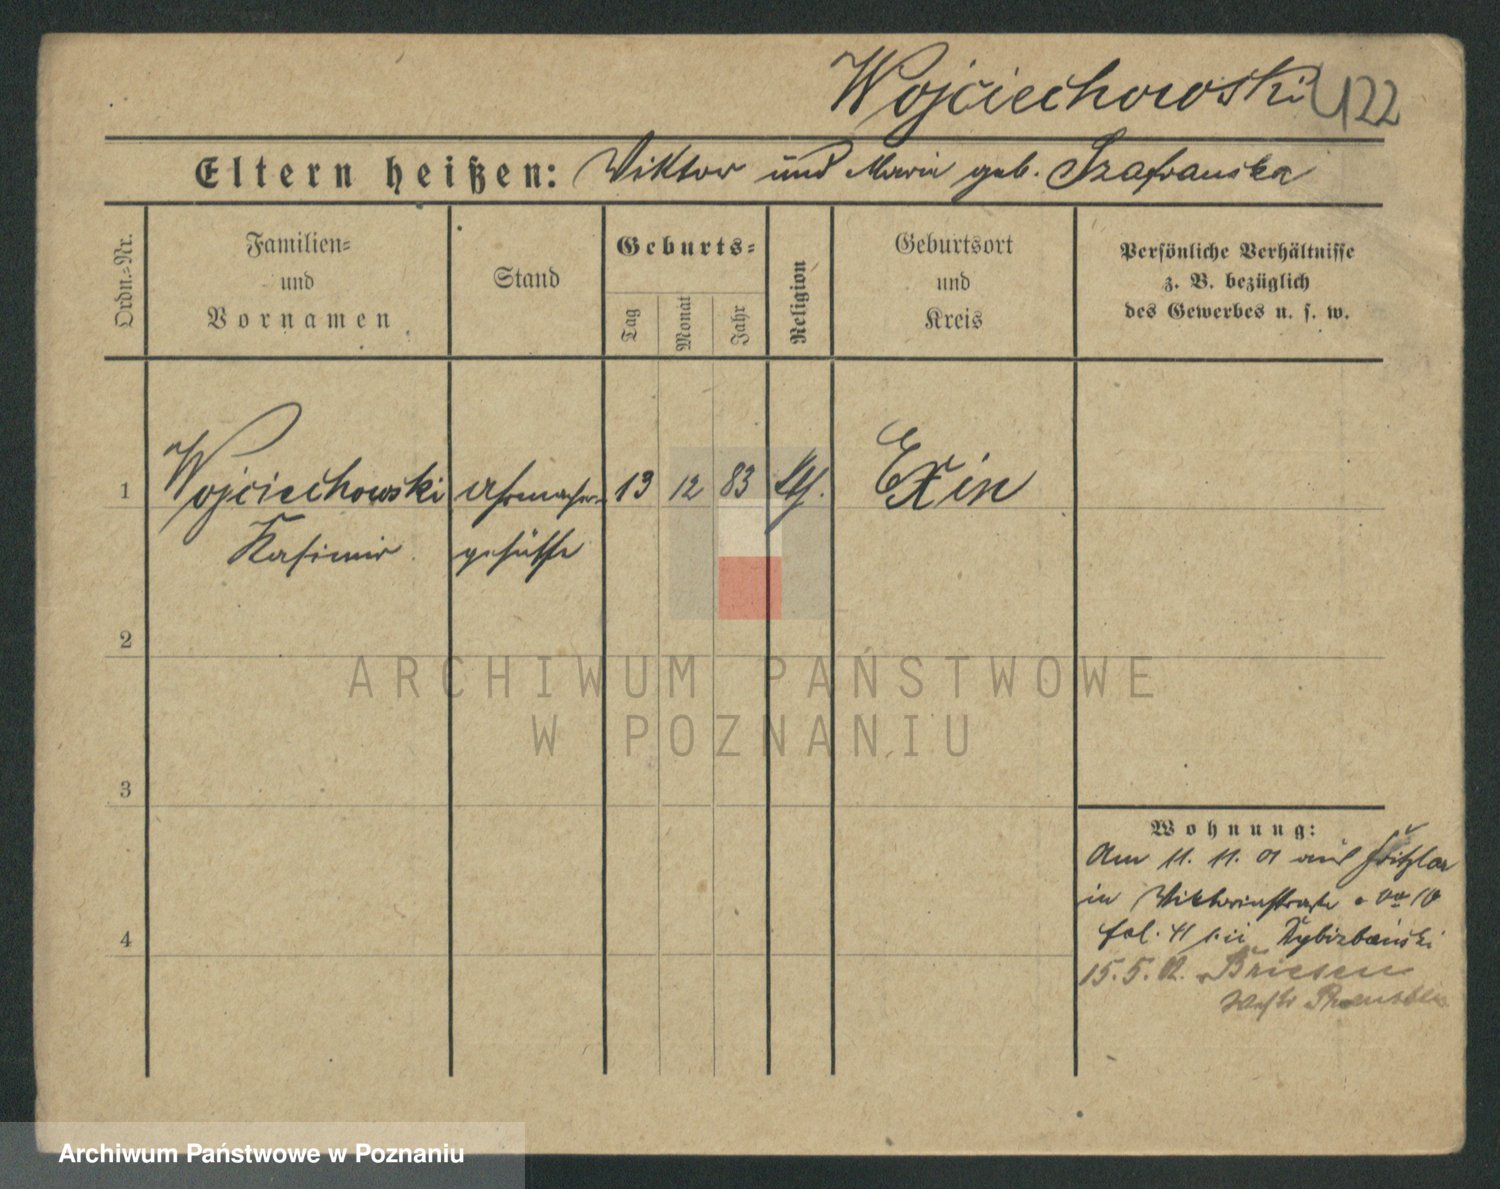 Wojciechowski 122
Eltern heißen: Viktor und Maria geb. Szafranska
Ordn.=Nr.
Familien=
und
Vornamen
Stand
Geburts=
Tag
Monat
Jahr
Religion
Geburtsort
und
Kreis
Persönliche Verhältnisse
z. B. bezüglich
des Gewerbes u. s. w.
1 Wojciechowski Uhrmacher- 13 12 83 kth. Exin
Kasimir gehülfe
2
3
4
Wohnung:
Am 11. 11. 01 aus Fritzlar
in Viktoriastraße 10
fol. 41 bei
15. 5. 02. Briesen
ARCHIWUM PAŃSTWOWE
W POZNANIU
Archiwum Państwowe w Poznaniu